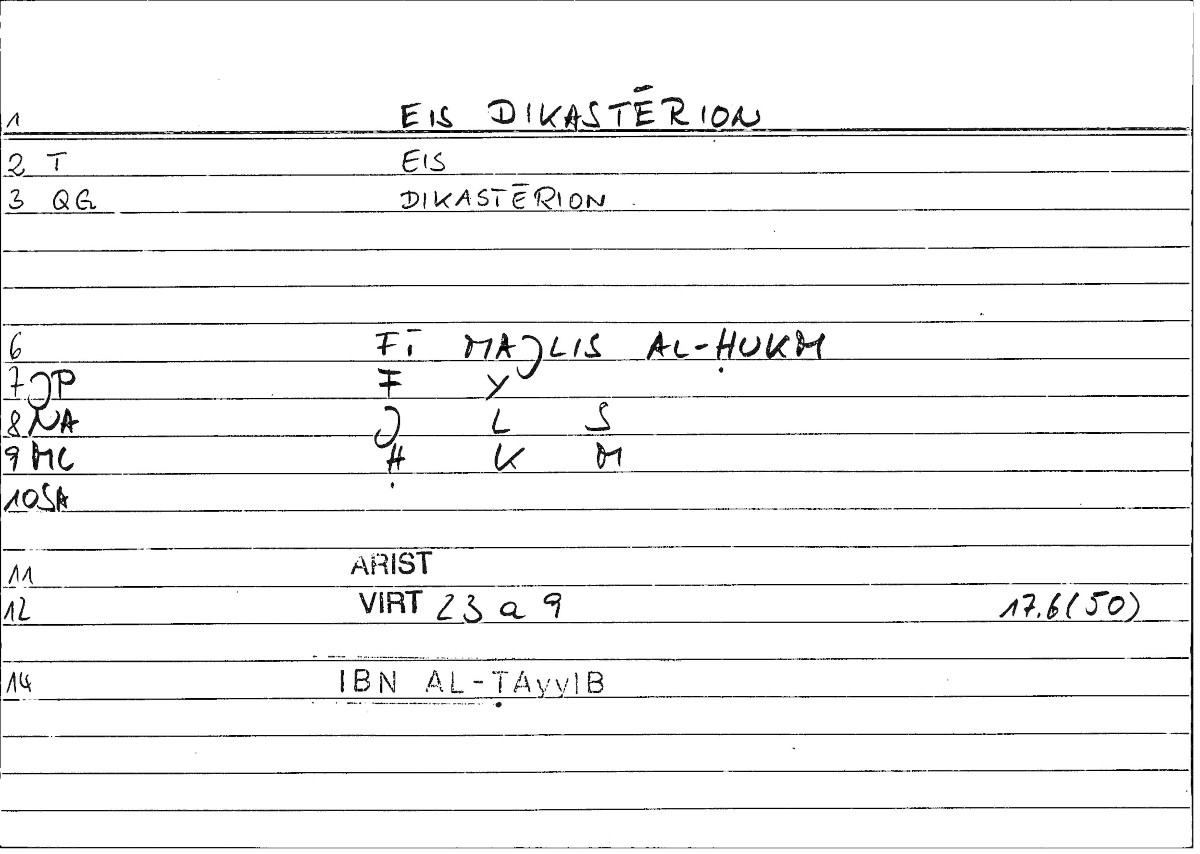 1 EIS DIKASTĒRION
2 T EIS
3 QG DIKASTĒRION
6 FĪ MAJLIS AL-ḤUKM
7 JP F Y
8 NA J L S
9 MC Ḥ K M
10 SA
11 ARIST
12 VIRT 23 a 9 17.6(50)
14 IBN AL-ṬAyyIB